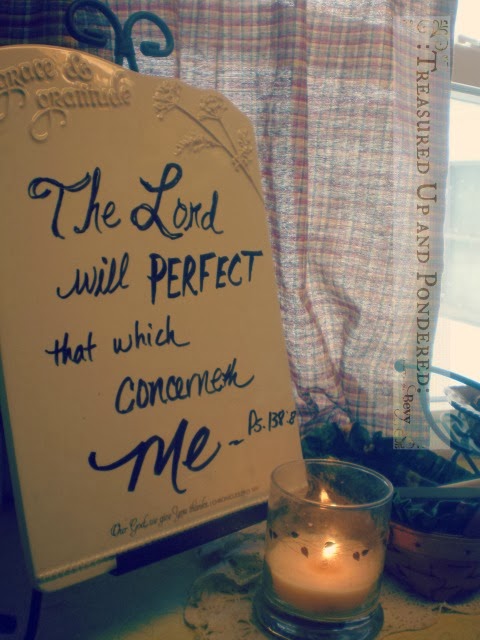 grace &
gratitude
The Lord
will PERFECT
that which
concerneth
Me ~ Ps. 138:8
Our God, we give You thanks
: TREASURED UP AND PONDERED :
BEVY